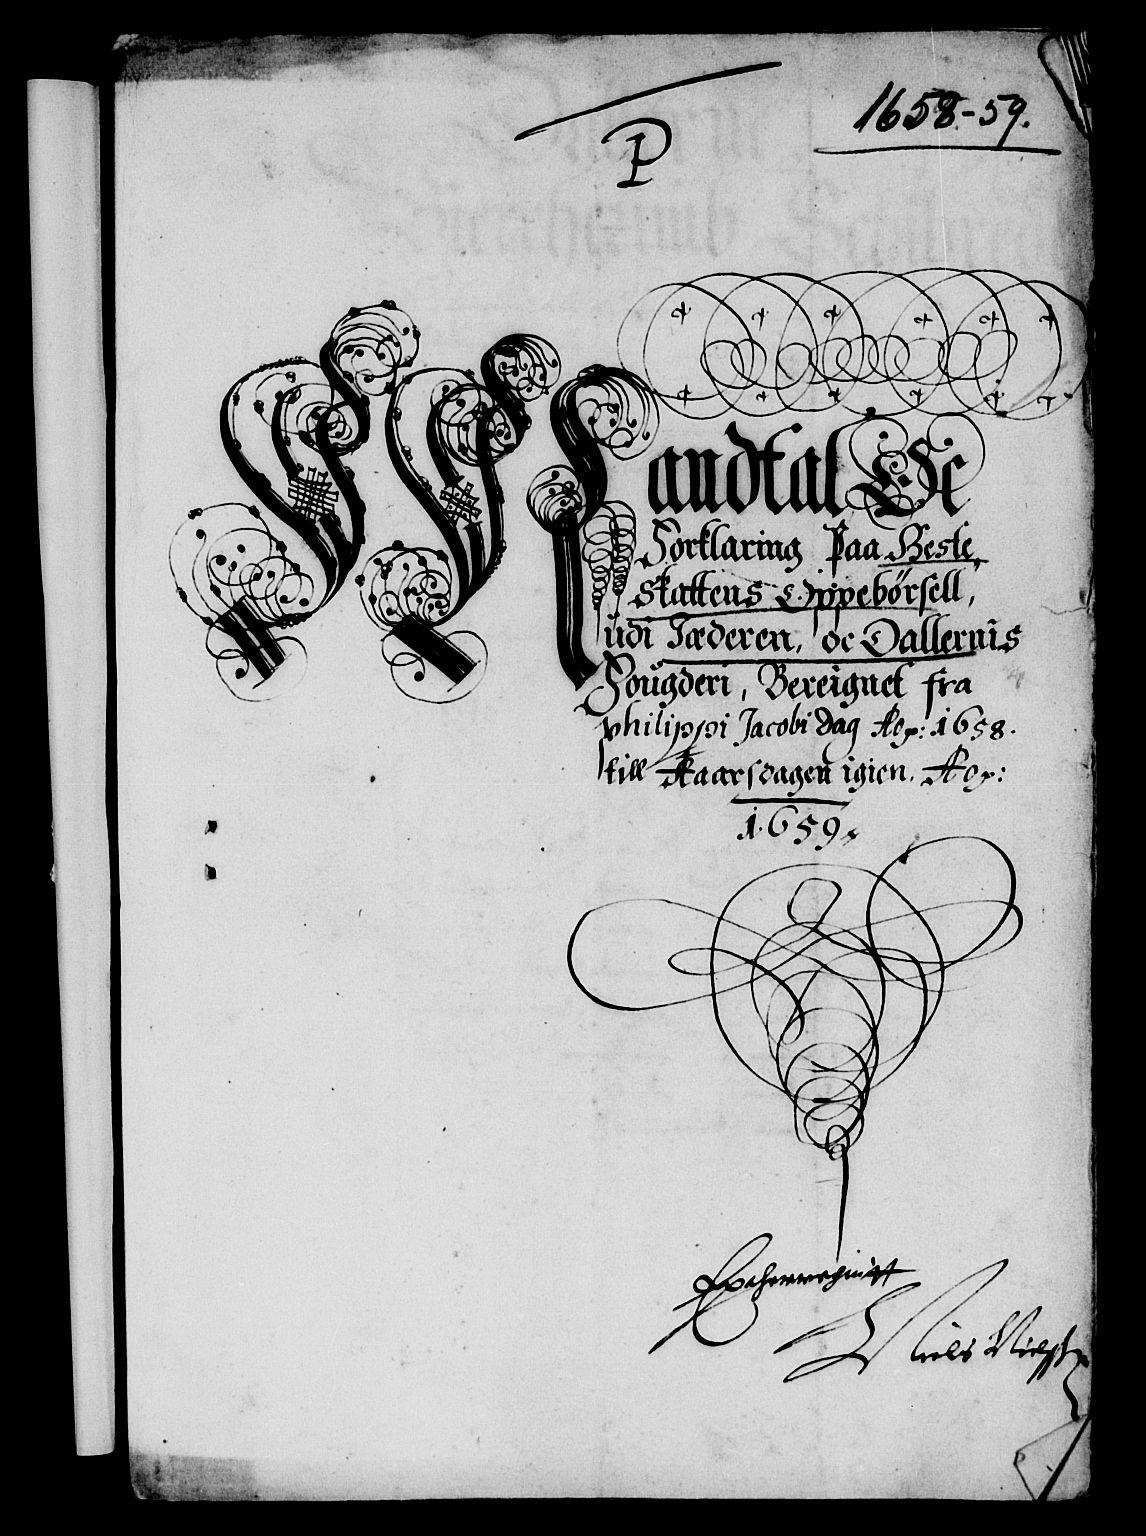 1658-59.
P
Mandtal Oc
Forklaring Paa Beste
skattens Oppebörsell,
udi Jæderen, oc Dallernis
Fougderi, Bereignet fra
Philippi Jacobi dag Ao: 1658.
till Aarsdagen igien. Ao:
1659.
Niels